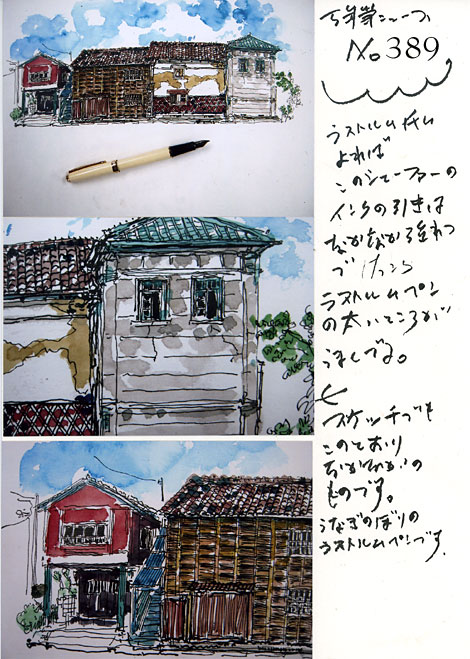 No 389
ラストルム氏に
よれば
このシェーファーの
インクの引きは
なかなか強わ
で
ラストルムペン
の太いところが
うまくでる。
と
スケッチでも
このとおり
なかなかの
ものです。
うなぎのぼりの
ラストルムペンです。